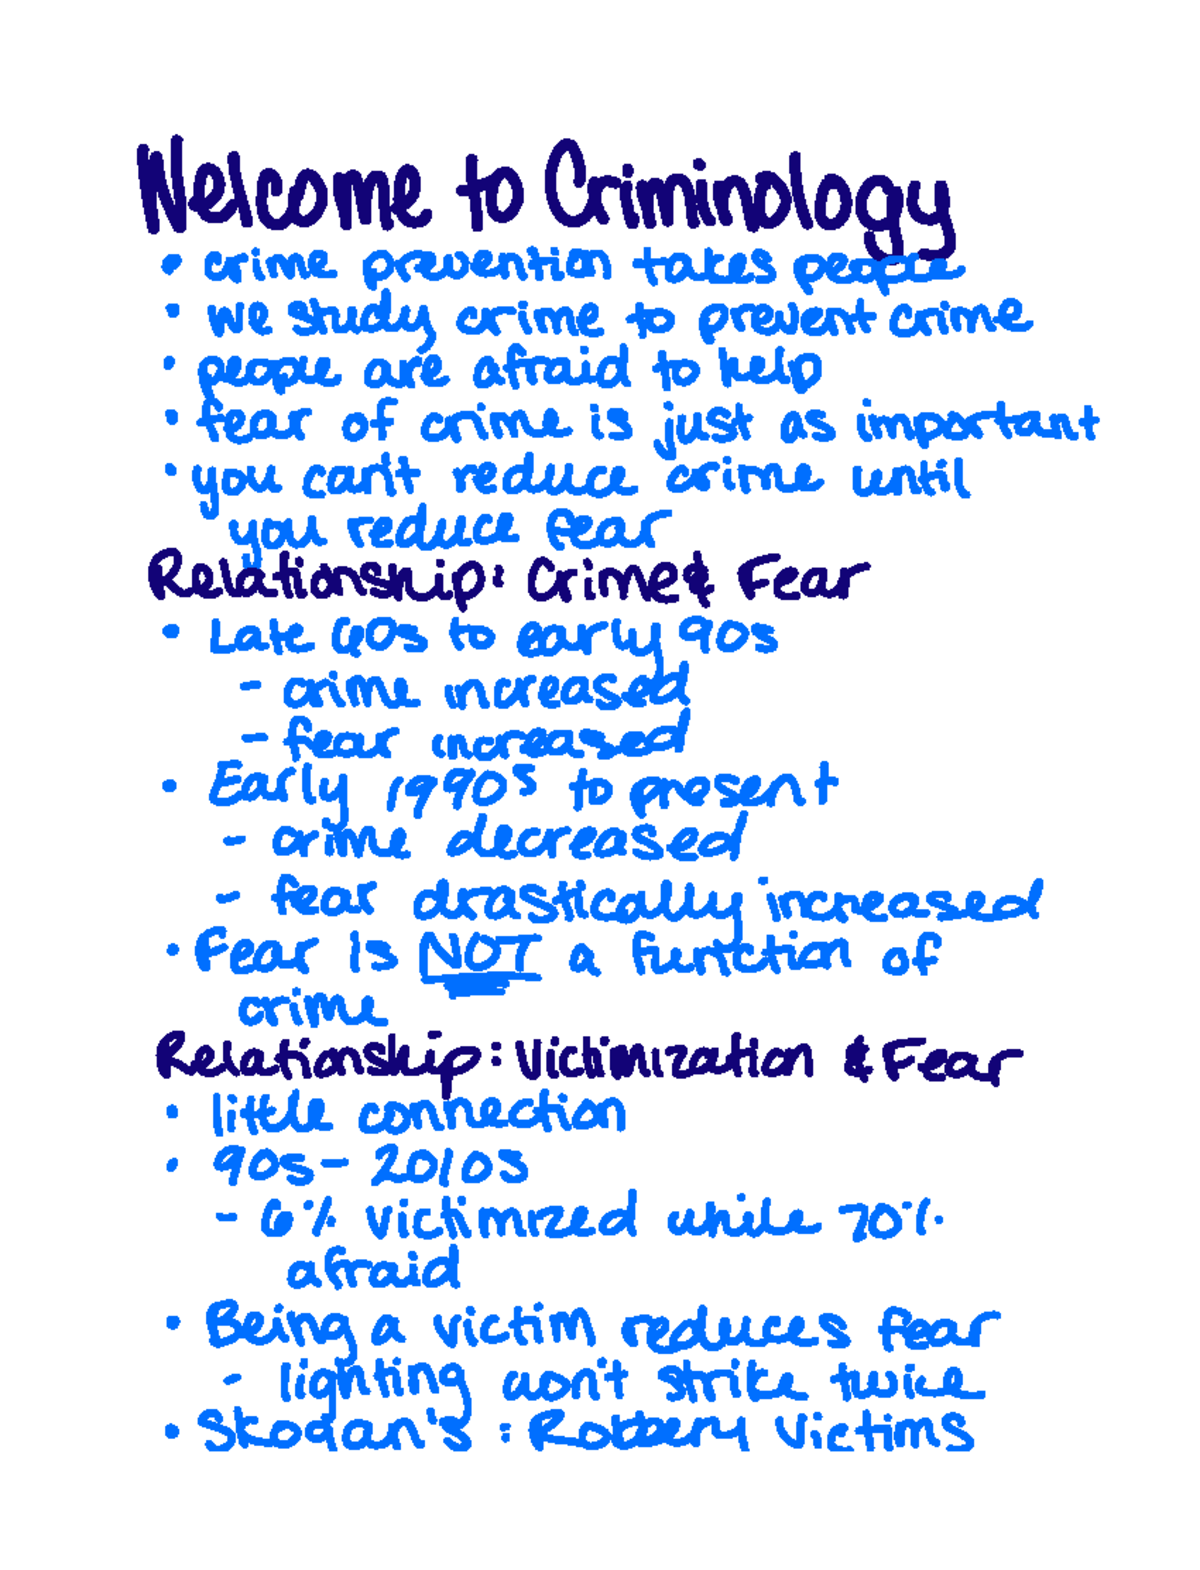 Welcome to Criminology
• crime prevention takes people
• we study crime to prevent crime
• people are afraid to help
• fear of crime is just as important
• you can't reduce crime until
you reduce fear
Relationship: Crime & Fear
• Late 60s to early 90s
- crime increased
- fear increased
• Early 1990s to present
- crime decreased
- fear drastically increased
• Fear is NOT a function of
crime
Relationship: Victimization & Fear
• little connection
• 90s - 2010s
- 6% victimized while 70%
afraid
• Being a victim reduces fear
- lighting won't strike twice
• Skogan's : Robbery Victims